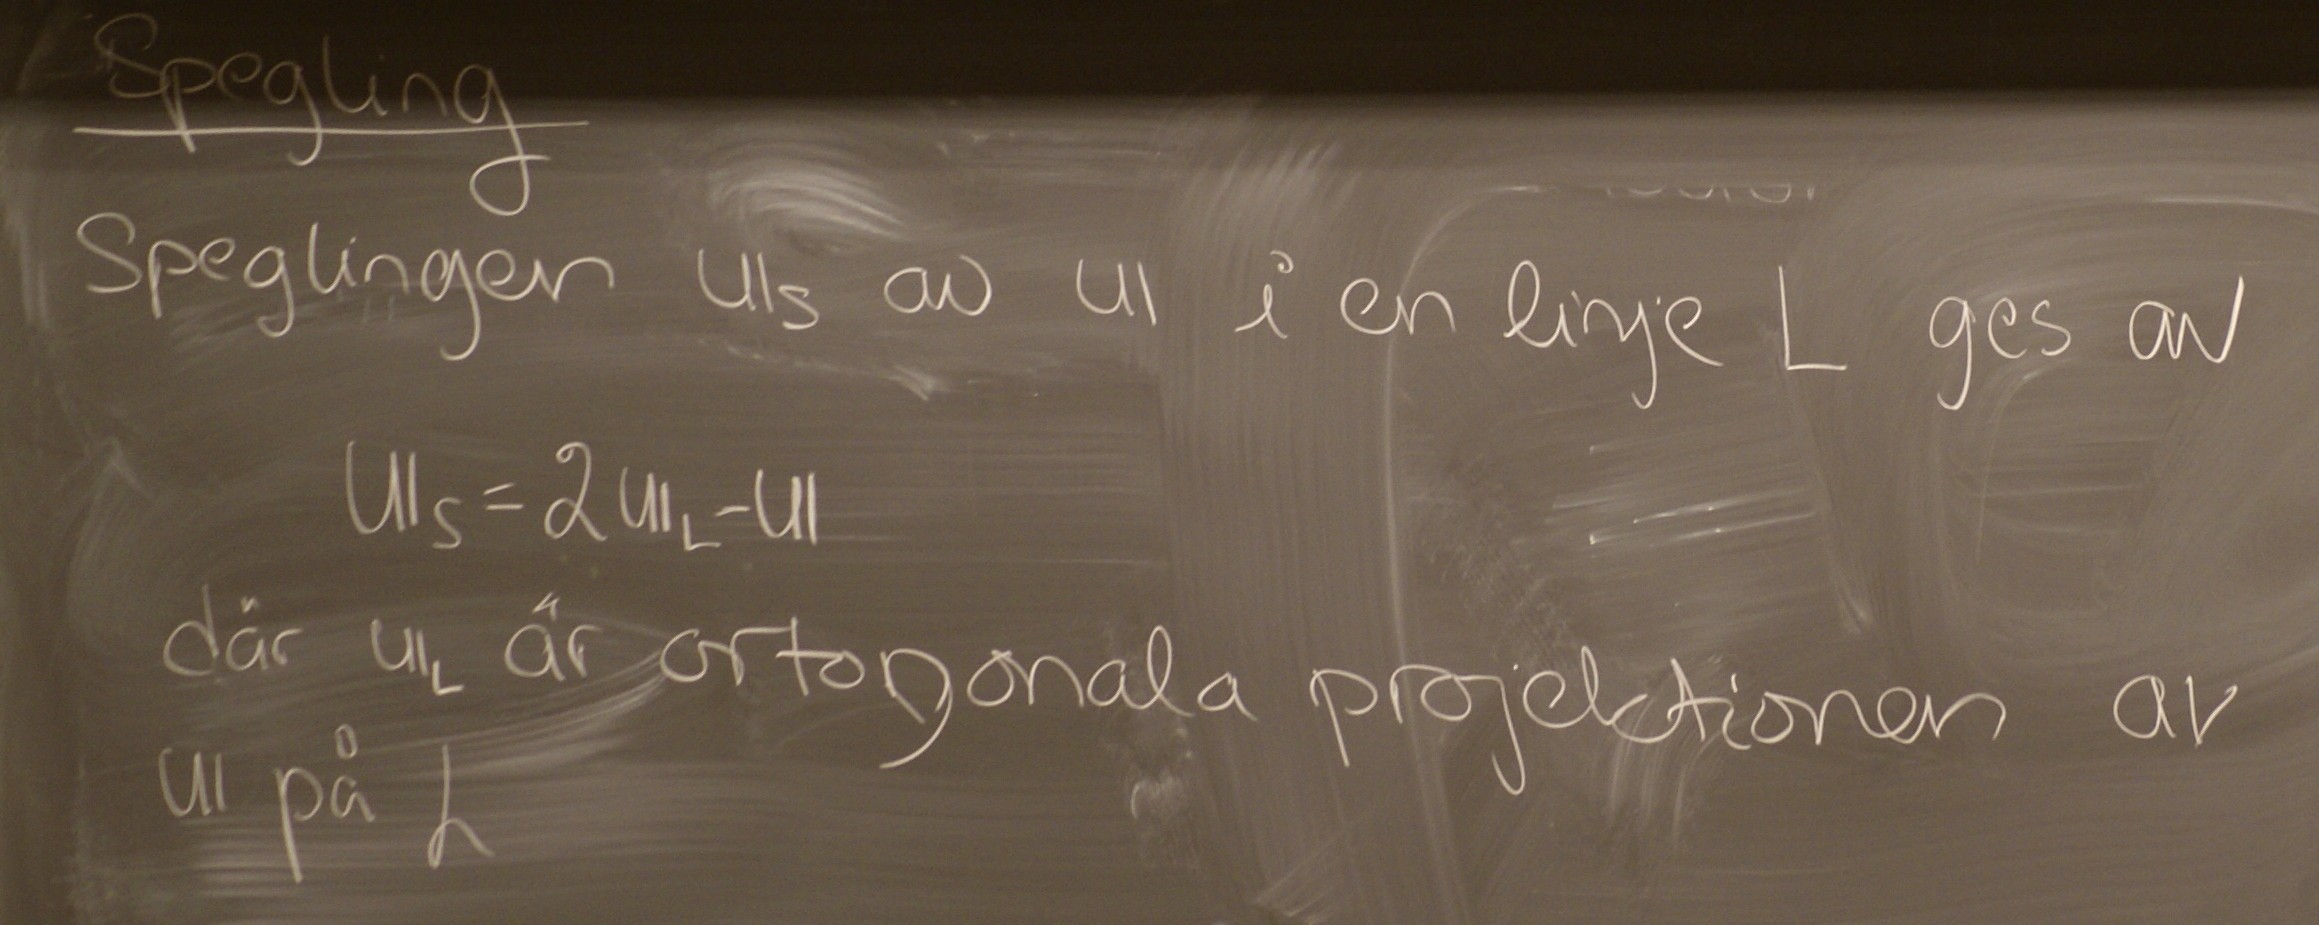 Spegling
Speglingen 𝕦ₛ av 𝕦 i en linje L ges av
𝕦ₛ = 2𝕦_L - 𝕦
där 𝕦_L är ortogonala projektionen av
𝕦 på L